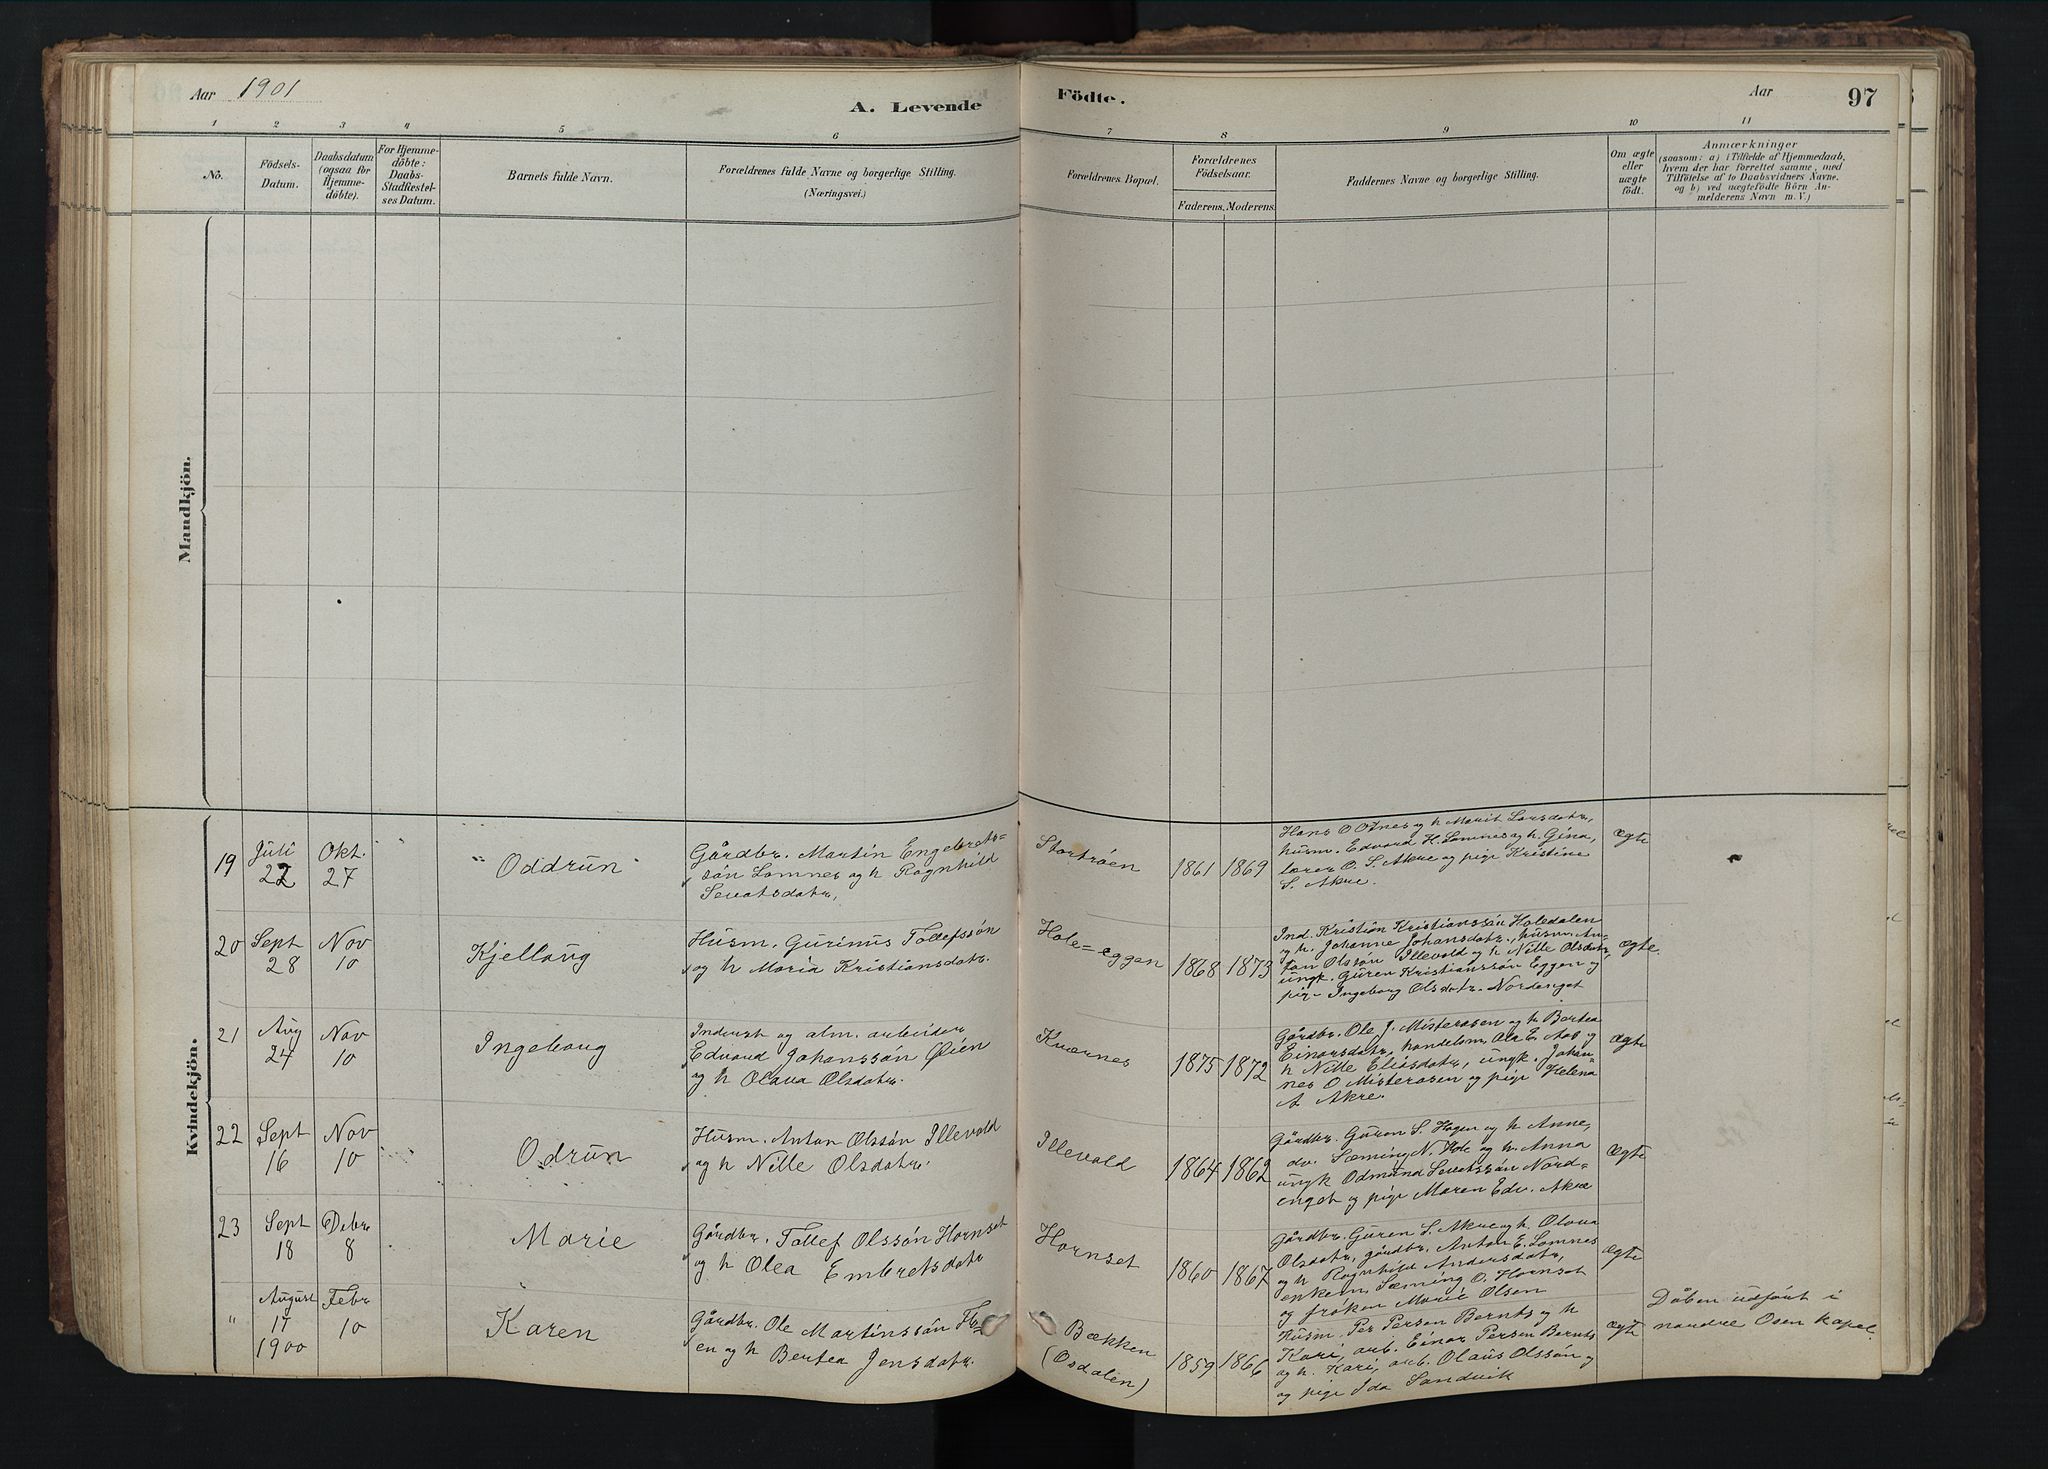 Aar 1901
A. Levende Födte.
Aar
97
1 2 3 4 5 6 7 8 9 10 11
No.
Födsels-
Datum.
Daabsdatum
(ogsaa for
Hjemme-
döbte).
For Hjemme-
döbte:
Daabs-
Stadfæstel-
ses Datum.
Barnets fulde Navn.
Forældrenes fulde Navne og borgerlige Stilling.
(Næringsvei.)
Forældrenes Bopæl.
Forældrenes
Födselsaar.
Faderens. Moderens.
Faddernes Navne og borgerlige Stilling.
Om ægte
eller
uægte
födt.
Anmærkninger
(saasom: a) i Tilfælde af Hjemmedaab,
hvem der har forrettet samme, med
Tilföielse af to Daabsvidners Navne.
og b) ved uægtefödte Börn An-
melderens Navn m. V.)
Mandkjön.
Kvindekjön.
19
Juli
22
Okt.
27
Oddrun
Gårdbr. Martin Engebrets-
søn Lomnes og h Ragnhild
Sevatsdatr.
Stortrøen
1861 1869
Hans O Otnes og h Marit Larsdatr,
husm. Edvard H. Lomnes og h. Gina,
lærer O. S. Akre og pige Kristine
S. Akre.
ægte
20
Sept
28
Nov
10
Kjellaug
Husm. Gurinus Tollefssøn
og h Maria Kristiansdatr.
Hole-eggen
1868 1873
Ind. Kristian Kristianssøn Holedalen
og h. Johanne Johansdatr., husm. An-
ton Olssøn Illevold og h Nille Olsdatr,
ungk. Guren Kristianssøn Eggen og
pige Ingeborg Olsdatr. Nordenget
ægte.
21
Aug
24
Nov
10
Ingeborg
Inderst og alm. arbeider
Edvard Johanssøn Øien
og h Olava Olsdatr.
Kværnes
1875 1872
Gårdbr. Ole J. Misterosen og h Bertea
Einarsdatr, handelsm. Ole E. Aas og
h Nille Eliasdatr, ungk. Johan-
nes O Misterosen og pige Helena
A Akre.
ægte
22
Sept
16
Nov
10
Odrun
Husm. Anton Olssøn Illevold
og h Nille Olsdatr.
Illevold
1864 1862
Gårdbr. Guren S. Hagen og h Anne,
do. Sæming N. Hole og h. Anna
ungk Odmund Sevatssøn Nord-
enget og pige Maren Edv. Akre
ægte
23
Sept
18
Debr.
8
Marie
Gårdbr. Tollef Olssøn Hornset
og h Olea Embretsdatr
Hornset
1860 1867
Gårdbr. Guren S. Akre og h. Olava
Olsdatr, gårdbr. Anton E. Lomnes
og h Ragnhild Andersdatr,
enkem. Sæming O. Hornset
og frøken Marie Olsen
ægte
"
August
17
1900
Febr
10
Karen
Gårdbr. Ole Martinssøn
en og h Bertea Jensdatr.
Bækken
(Osdalen)
1859 1866
Husm. Per Persen Bernts og h
Kari, arb. Einar Persen Bernts
og h. Kari, arb. Olaus Olssøn og
og pige Ida Sandvik
ægte
Dåben udført i
nordre Osen kapel.